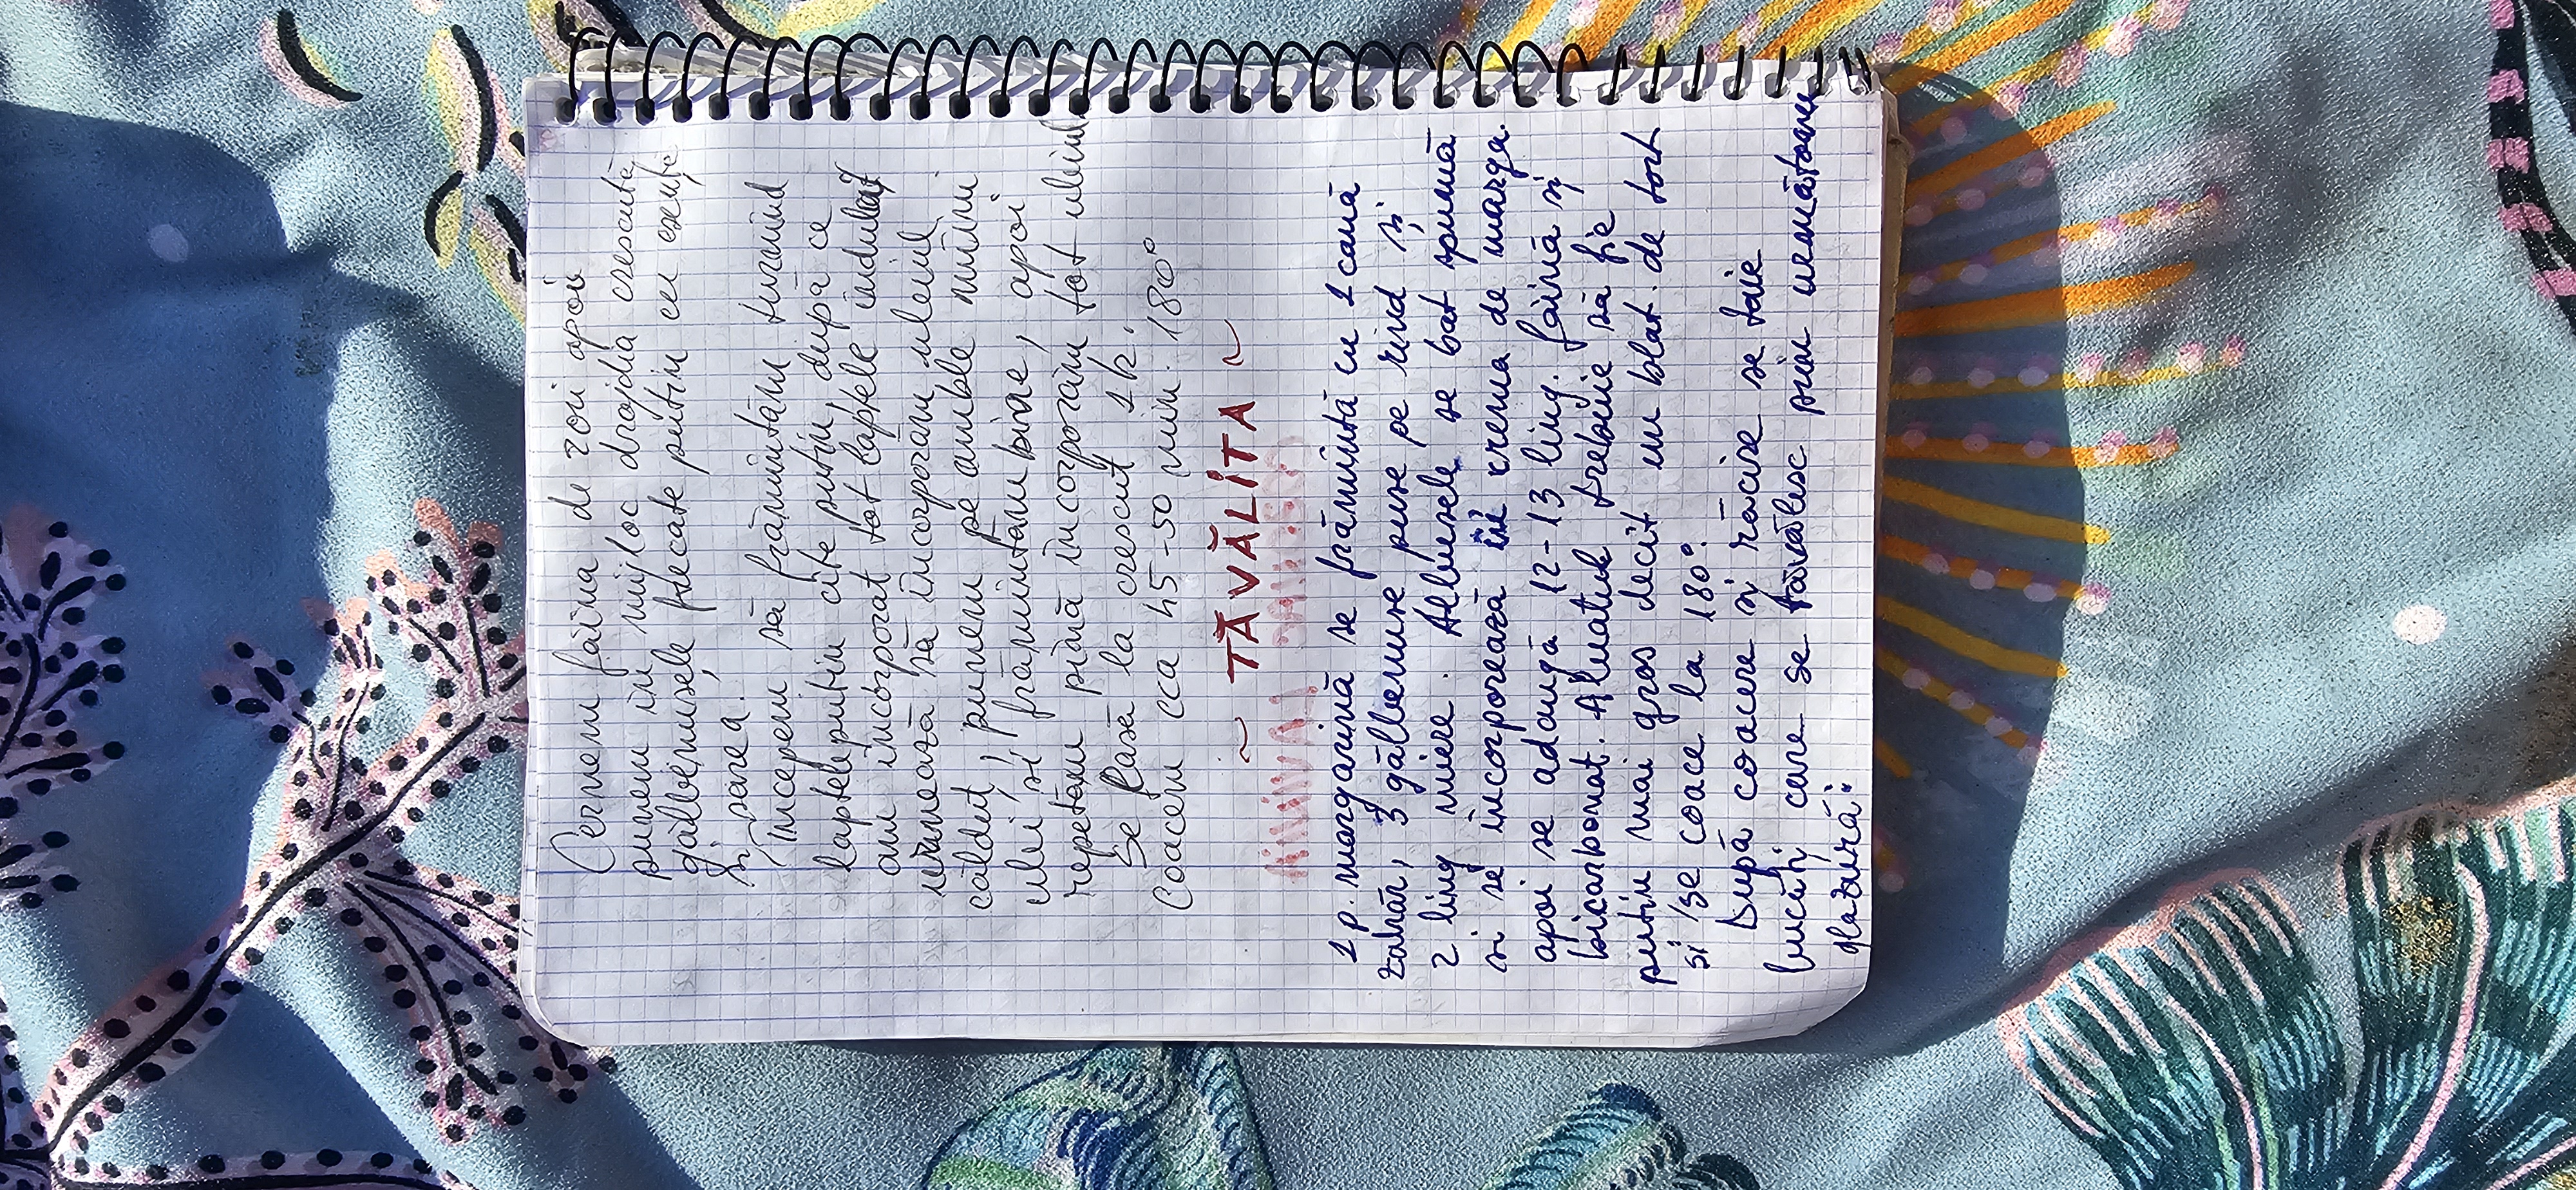 Cernem făina de 2 ori apoi
punem în mijloc drojdia crescută,
gălbenușele frecate puțin cu esență
și sarea.
Începem să frămîntăm turnînd
laptele puțin cîte puțin, după ce
am încorporat tot laptele îndulcit
urmează să încorporăm uleiul
călduț, punem pe ambele mîini
ulei și frămîntăm bine, apoi
repetăm pînă încorporăm tot uleiul.
Se lasă la crescut 1 h.
Coacem cca 45-50 min. 180°
~ TĂVĂLITA ~
COZONAC LAVINIA
1 p. margarină se frămîntă cu 1 cană
zahăr, 3 gălbenușe puse pe rînd și
2 ling miere. Albușele se bat spumă
și se încorporează în crema de marga.
apoi se adaugă 12-13 ling. făină și
bicarbonat. Aluatul trebuie să fie
puțin mai gros decît un blat de tort
și se coace la 180°.
După coacere și răcire se taie
bucăți care se tăvălesc prin următoarea
glazură: